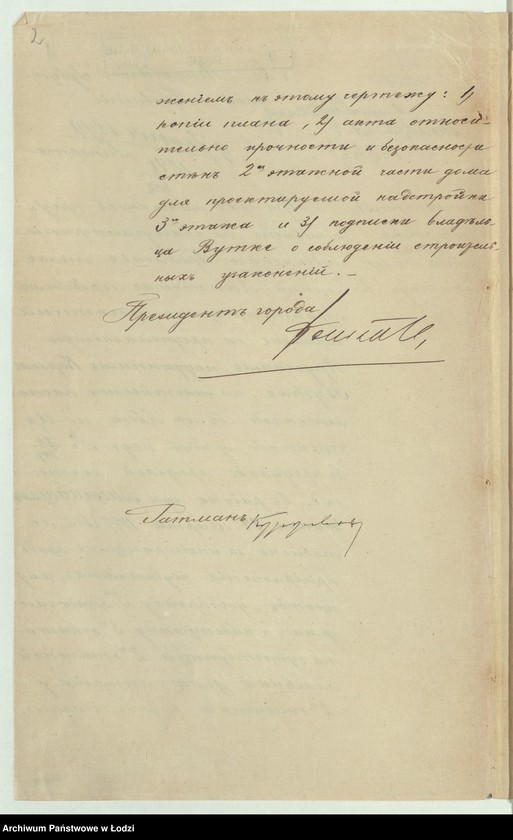 2
женіемъ къ этому чертежу: 1)
копіи плана, 2) акта относи-
тельно прочности и безопасности
стѣнъ 2хъ этажной части дома
для проектируемой надстройки
3го этажа и 3) подписки владѣль-
ца Вутке о соблюденіи строитель-
ныхъ узаконеній. —
Президентъ города
Ратманъ
Archiwum Państwowe w Łodzi